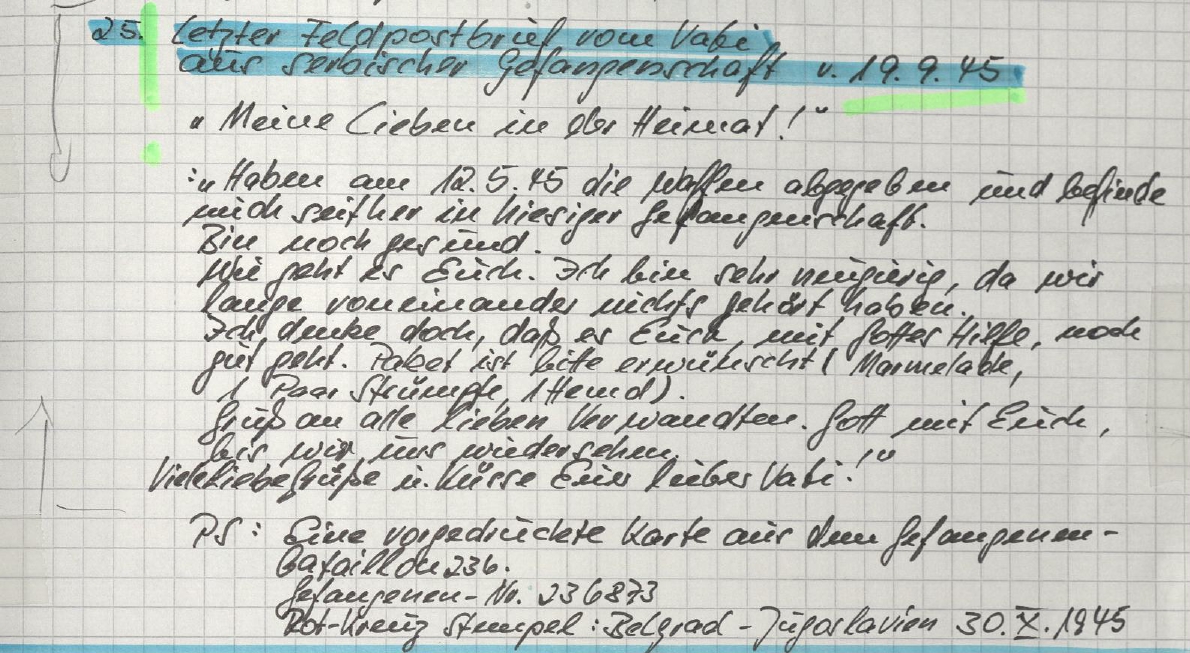 25. Letzter Feldpostbrief vom Vati
aus serbischer Gefangenschaft v. 19.9.45
"Meine Lieben in der Heimat!"
:"Haben am 12.5.45 die Waffen abgegeben und befinde
mich seither in hiesiger Gefangenschaft.
Bin noch gesund.
Wie geht es Euch. Ich bin sehr neugierig, da wir
lange voneinander nichts gehört haben.
Ich denke doch, daß es Euch, mit Gottes Hilfe, noch
gut geht. Paket ist bite erwünscht (Marmelade,
1 Paar Strümpfe, 1 Hemd).
Gruß an alle lieben Verwandten. Gott mit Euch,
bis wir uns wiedersehen
Viele liebe Grüße u. Küsse Euer lieber Vati!"
PS: Eine vorgedruckte Karte aus dem Gefangenen-
bataillon 236.
Gefangenen-Nr. 236873
Rot-Kreuz Stempel: Belgrad-Jugoslavien 30.X.1945